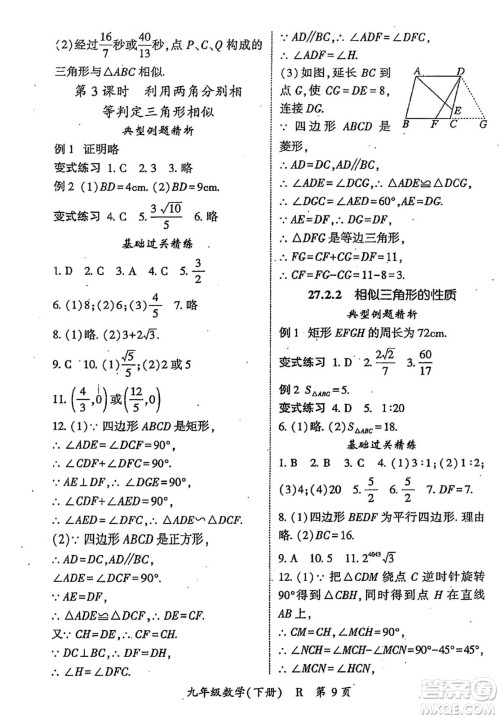 (2)经过16/7秒或40/13秒,点 P、C、Q 构成的
三角形与△ABC 相似.
第 3 课时 利用两角分别相
等判定三角形相似
典型例题精析
例 1 证明略
变式练习 1. C 2. C 3. 略
例 2 (1)BD=4cm. (2)BD=9cm.
变式练习 4. C 5. 3√10/5 6. 略
基础过关精练
1. D 2. A 3. C 4. C 5. 3/2
6. (1)略. (2)6 7. 略 8. 略
9. C 10. (1)√5/5 (2)略
11. (4/3,0)或(12/5,0)
12. (1)∵四边形 ABCD 是矩形,
∴∠ADE=∠DCF=90°,
∴∠CDF+∠DFC=90°,
∵AE⊥DF,∴∠DGE=90°,
∴∠CDF+∠AED=90°,
∴∠AED=∠DFC,
∴△ADE∽△DCF.
(2)∵四边形 ABCD 是正方形,
∴AD=DC,
∠ADE=∠DCF=90°,
∵AE=DF,
∴△ADE≌△DCF,
∴DE=CF.
又∵CH=DE,∴CF=CH.
∵∠DCF=∠DCH=90°,
又∵DC=DC,
∴△DCF≌△DCH,
∴∠DFC=∠H.
∵AD∥BC,
∴∠ADF=∠DFC,
∴∠ADF=∠H.
(3)如图,延长 BC 至点
G,使 CG=DE=8,
连接 DG.
A
D
E
B
F
C
G
∵四边形 ABCD 是
菱形,
∴AD=DC,AD∥BC,
∴∠ADE=∠DCG,
∴△ADE≌△DCG,
∴∠DGC=∠AED=60°,
∵AE=DF,∴DG=DF,
∴△DFG 是等边三角形,
∴FG=DF=11,
∵CF+CG=FG,
∴CF=FG-CG=11-8=3.
27.2.2 相似三角形的性质
典型例题精析
例 1 矩形 EFGH 的周长为 72cm.
变式练习 1. D 2. 2√2/7 3. 60/17
例 2 S△ABC=5.
变式练习 4. D 5. 1:20
6. (1)略. (2)S△ABC=9.
基础过关精练
1. B 2. A 3. (1)3:1; (2)1:2;
(3)4:1. 4. D 5. 5/2 6. 略 7. 5/2
8. (1)四边形 BEDF 为平行四边形.理由
略. (2)BE=16.
9. A 10. 5 11. 2⁴⁰⁴³√3
12. (1)∵把△CDM 绕点 C 逆时针旋转
90°得到△CBH,此时点 H 在直线
AB 上,
∴CM=CH,
∠MCH=90°.
∵∠MCN=45°,
∴∠HCN=45°,
∴∠MCN=∠HCN.
九年级数学(下册) R 第 9 页